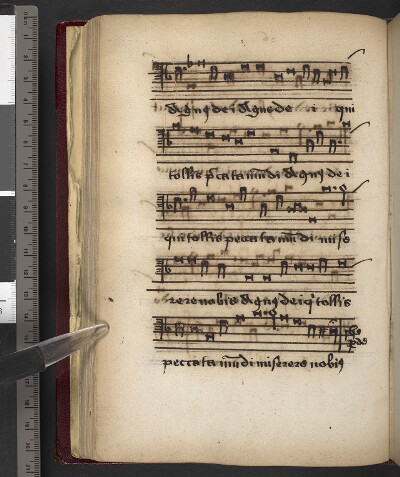 Agnus dei Agnus de i qui
tollis pccata mūdi Agnus dei
qui tollis pecca ta mūdi mise
rere nobis Agnus dei q tollis
peccata mūdi miserere nobis